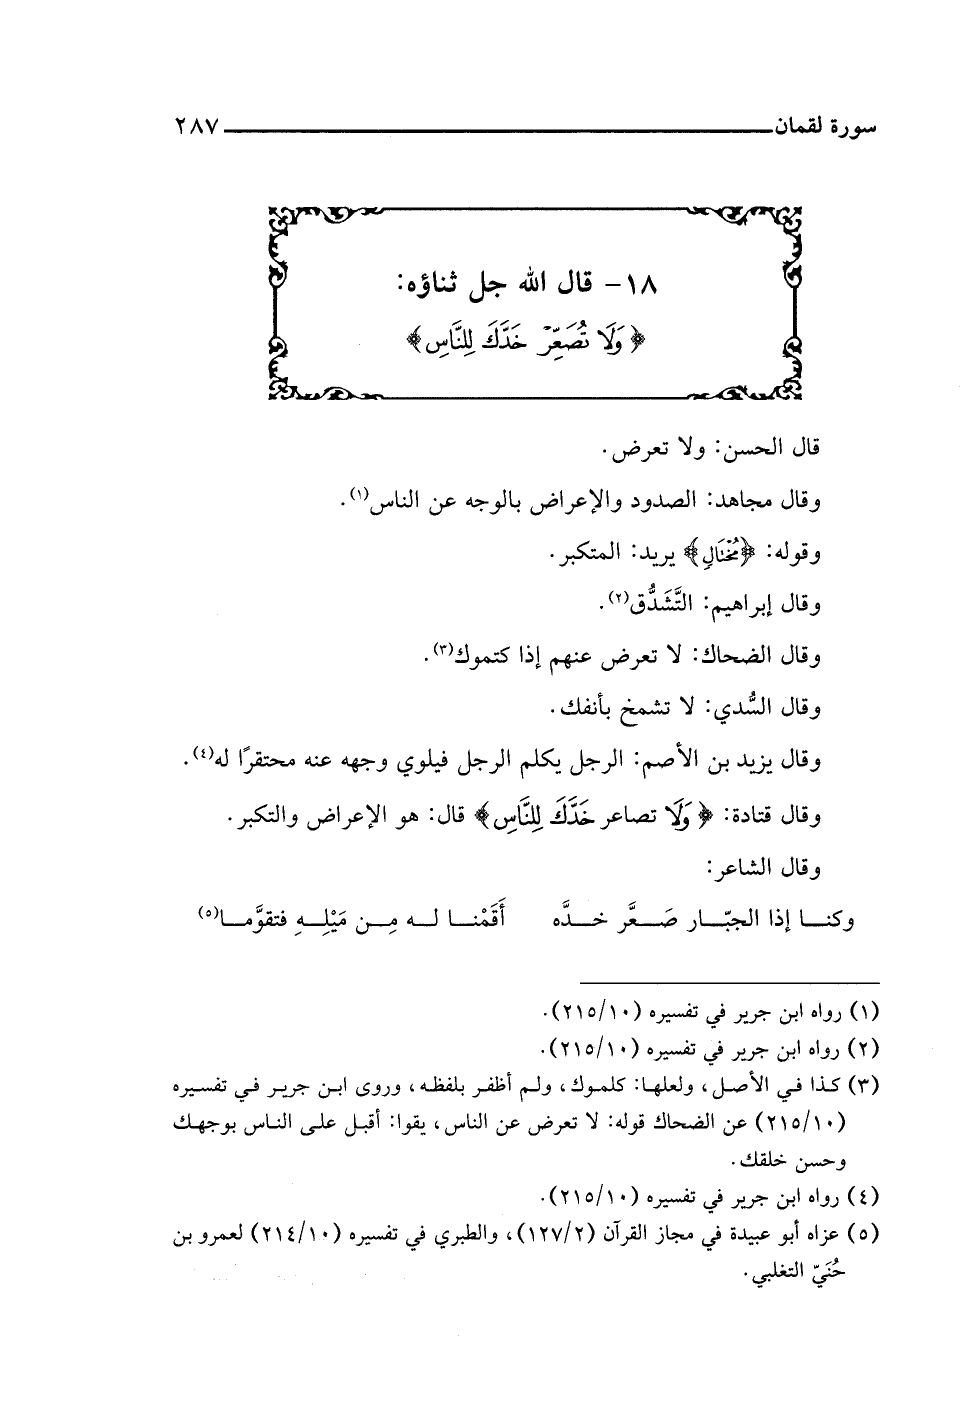 سورة لقمان ٢٨٧
١٨- قال الله جل ثناؤه:
﴿وَلَا تُصَعِّرْ خَدَّكَ لِلنَّاسِ﴾
قال الحسن: ولا تعرض.
وقال مجاهد: الصدود والإعراض بالوجه عن الناس(١).
وقوله: ﴿مُخْتَالٍ﴾ يريد: المتكبر.
وقال إبراهيم: التَّشَدُّق(٢).
وقال الضحاك: لا تعرض عنهم إذا كتموك(٣).
وقال السُّدي: لا تشمخ بأنفك.
وقال يزيد بن الأصم: الرجل يكلم الرجل فيلوي وجهه عنه محتقرًا له(٤).
وقال قتادة: ﴿وَلَا تصاعر خَدَّكَ لِلنَّاسِ﴾ قال: هو الإعراض والتكبر.
وقال الشاعر:
وكنـــا إذا الجبّـــار صَـــعَّر خـــدَّه أَقَمْنـــا لـــه مِـــن مَيْلِـــهِ فتقوَّمـــا(٥)
(١) رواه ابن جرير في تفسيره (٢١٥/١٠).
(٢) رواه ابن جرير في تفسيره (٢١٥/١٠).
(٣) كذا في الأصل، ولعلها: كلموك، ولم أظفر بلفظه، وروى ابن جرير في تفسيره
(٢١٥/١٠) عن الضحاك قوله: لا تعرض عن الناس، يقوا: أقبل على الناس بوجهك
وحسن خلقك.
(٤) رواه ابن جرير في تفسيره (٢١٥/١٠).
(٥) عزاه أبو عبيدة في مجاز القرآن (١٢٧/٢)، والطبري في تفسيره (٢١٤/١٠) لعمرو بن
حُنَيّ التغلبي.